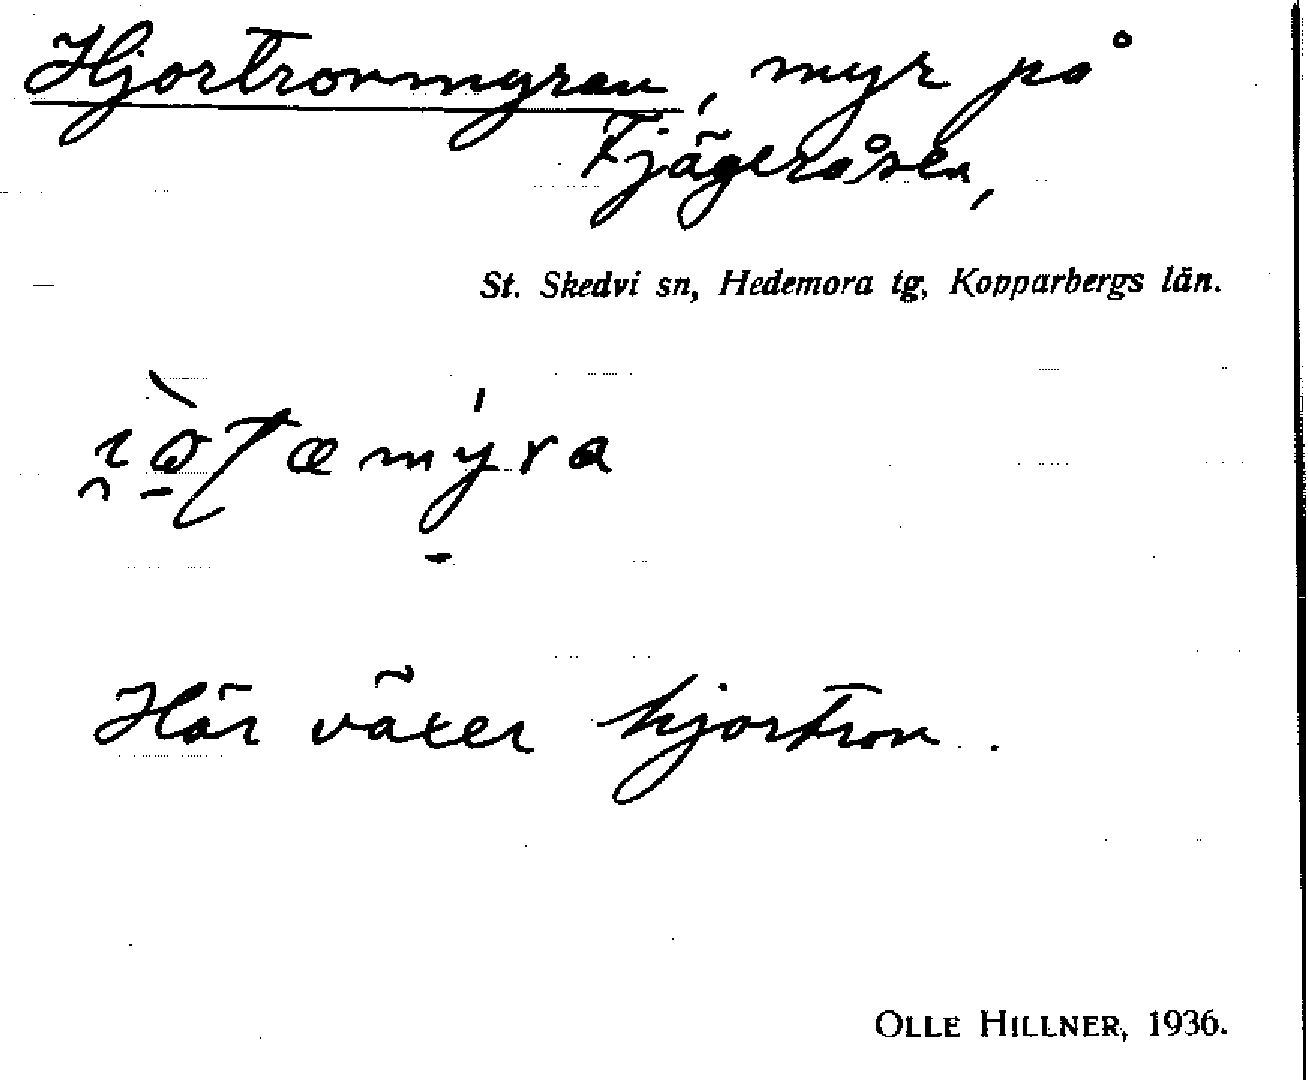 Hjortronmyran, myr på
Fjägeråsen,
St. Skedvi sn, Hedemora tg, Kopparbergs län.
Här växer hjortron.
OLLE HILLNER, 1936.